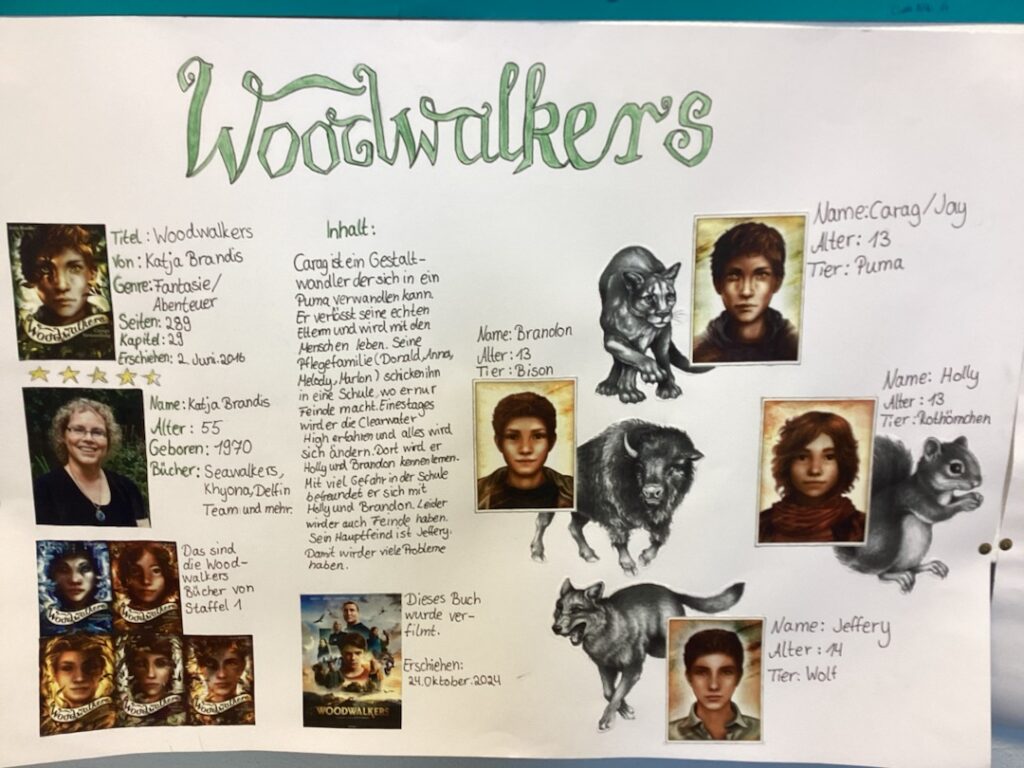 Woodwalkers
Woodwalkers
Titel: Woodwalkers
Von: Katja Brandis
Genre: Fantasie/
Abenteuer
Seiten: 289
Kapitel: 29
Erschiehen: 2. Juni. 2016
Name: Katja Brandis
Alter: 55
Geboren: 1970
Bücher: Seawalkers,
Khyona, Delfin
Team und mehr.
Woodwalkers
Woodwalkers
Woodwalkers
Woodwalkers
Woodwalkers
Das sind
die Wood-
walkers
Bücher von
Staffel 1
Inhalt:
Carag ist ein Gestalt-
wandler der sich in ein
Puma verwandlen kann.
Er verlässt seine echten
Elterm und wird mit den
Menschen leben. Seine
Pflegefamilie (Donald, Anna,
Melody, Marlon) schicken ihn
in eine Schule, wo er nur
Feinde macht. Eines tages
wird er die Clearwater
High erfahren und alles wird
sich ändern. Dort wird er
Holly und Brandon kennen lernen.
Mit viel Gefahr in der Schule
befreundet er sich mit
Holly und Brandon. Leider
wird er auch Feinde haben.
Sein Hauptfeind ist Jeffery.
Damit wird er viele Probleme
haben.
WOODWALKERS
Dieses Buch
wurde ver-
filmt.
Erschiehen:
24. Oktober. 2024
Name: Carag/Jay
Alter: 13
Tier: Puma
Name: Brandon
Alter: 13
Tier: Bison
Name: Holly
Alter: 13
Tier: Rothörnchen
Name: Jeffery
Alter: 14
Tier: Wolf